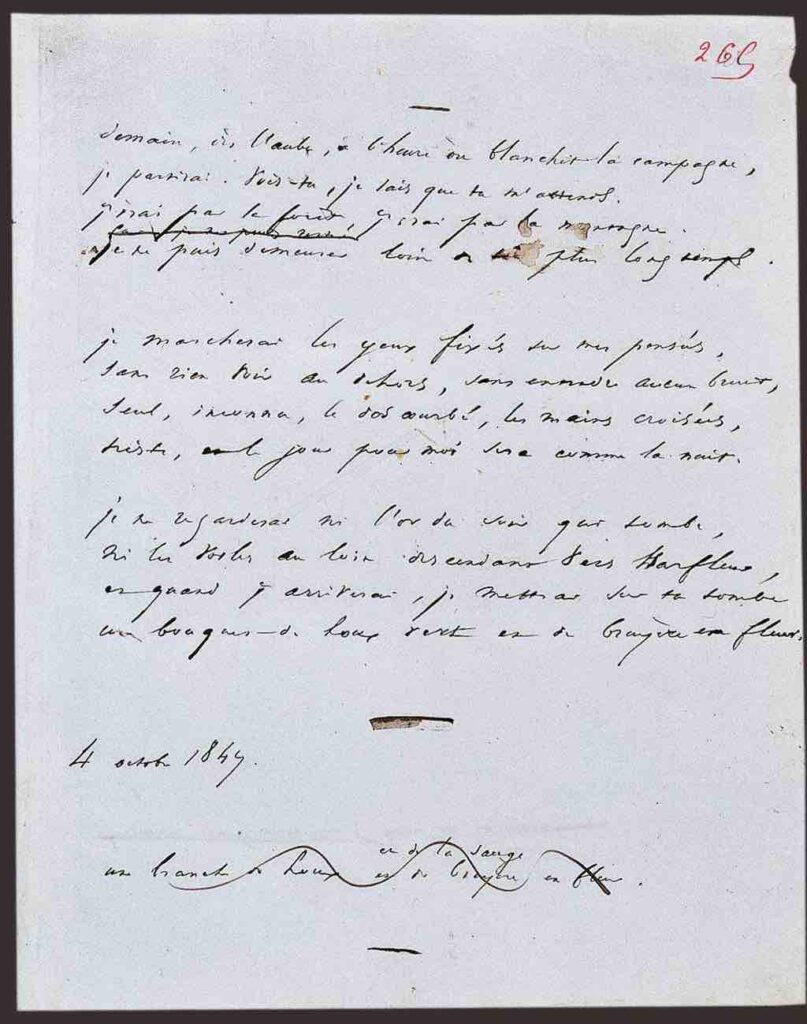 265
demain, dès l'aube, à l'heure où blanchit la campagne,
je partirai. Vois-tu, je sais que tu m'attends.
j'irai par la forêt, j'irai par la montagne.
je ne puis demeurer loin de toi plus longtemps.
je marcherai les yeux fixés sur mes pensées,
sans rien voir au dehors, sans entendre aucun bruit,
seul, inconnu, le dos courbé, les mains croisées,
triste, et le jour pour moi sera comme la nuit.
je ne regarderai ni l'or du soir qui tombe,
ni les voiles au loin descendant vers Harfleur,
et quand j'arriverai, je mettrai sur ta tombe
un bouquet de houx vert et de bruyère en fleur.
4 octobre 1847.
et de la sauge
une branche de houx et de bruyère en fleur.